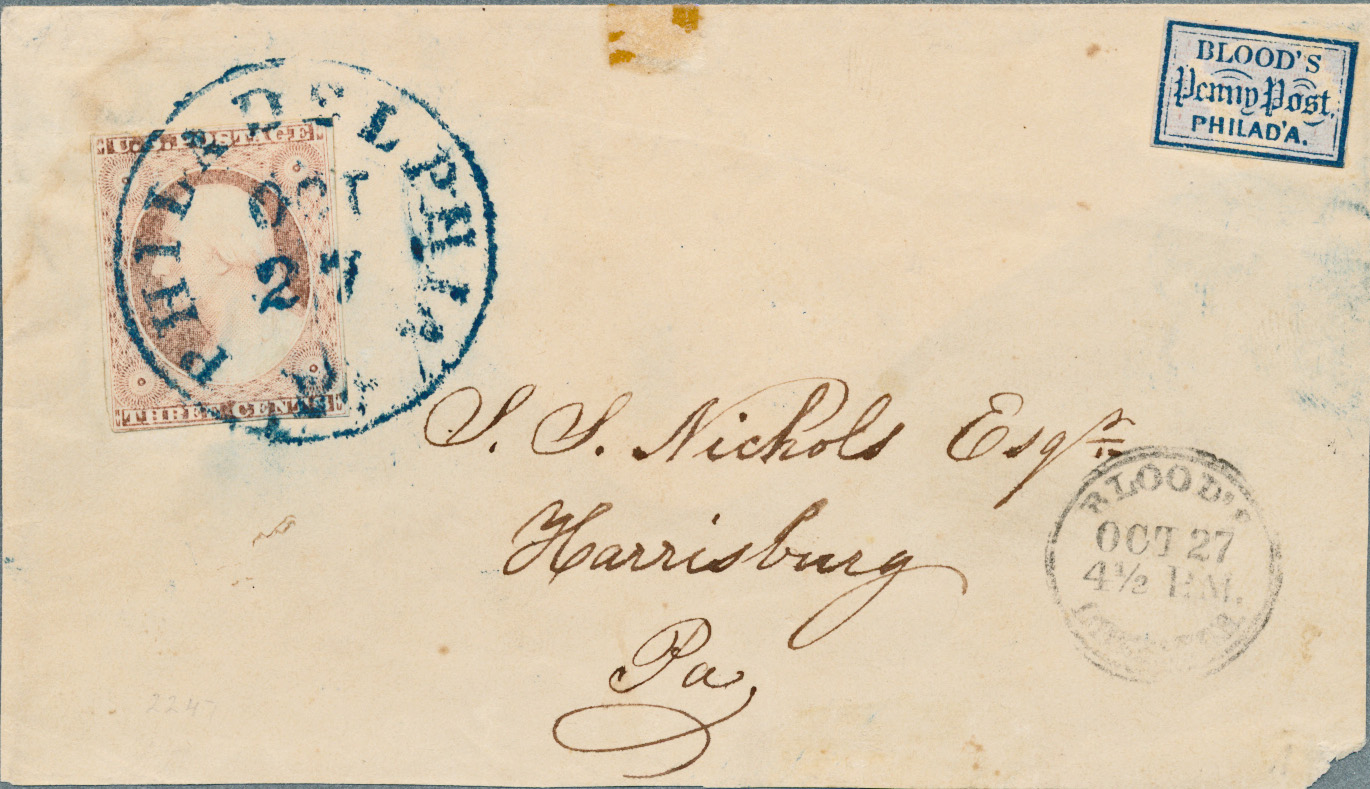 BLOOD'S
Penny Post,
PHILAD'A.
U.S. POSTAGE
THREE CENTS
PHILADELPHIA
OCT
27
Pa
S. S. Nichols Esqr
Harrisburg
Pa,
BLOOD'S
OCT 27
4½ P.M.
2247